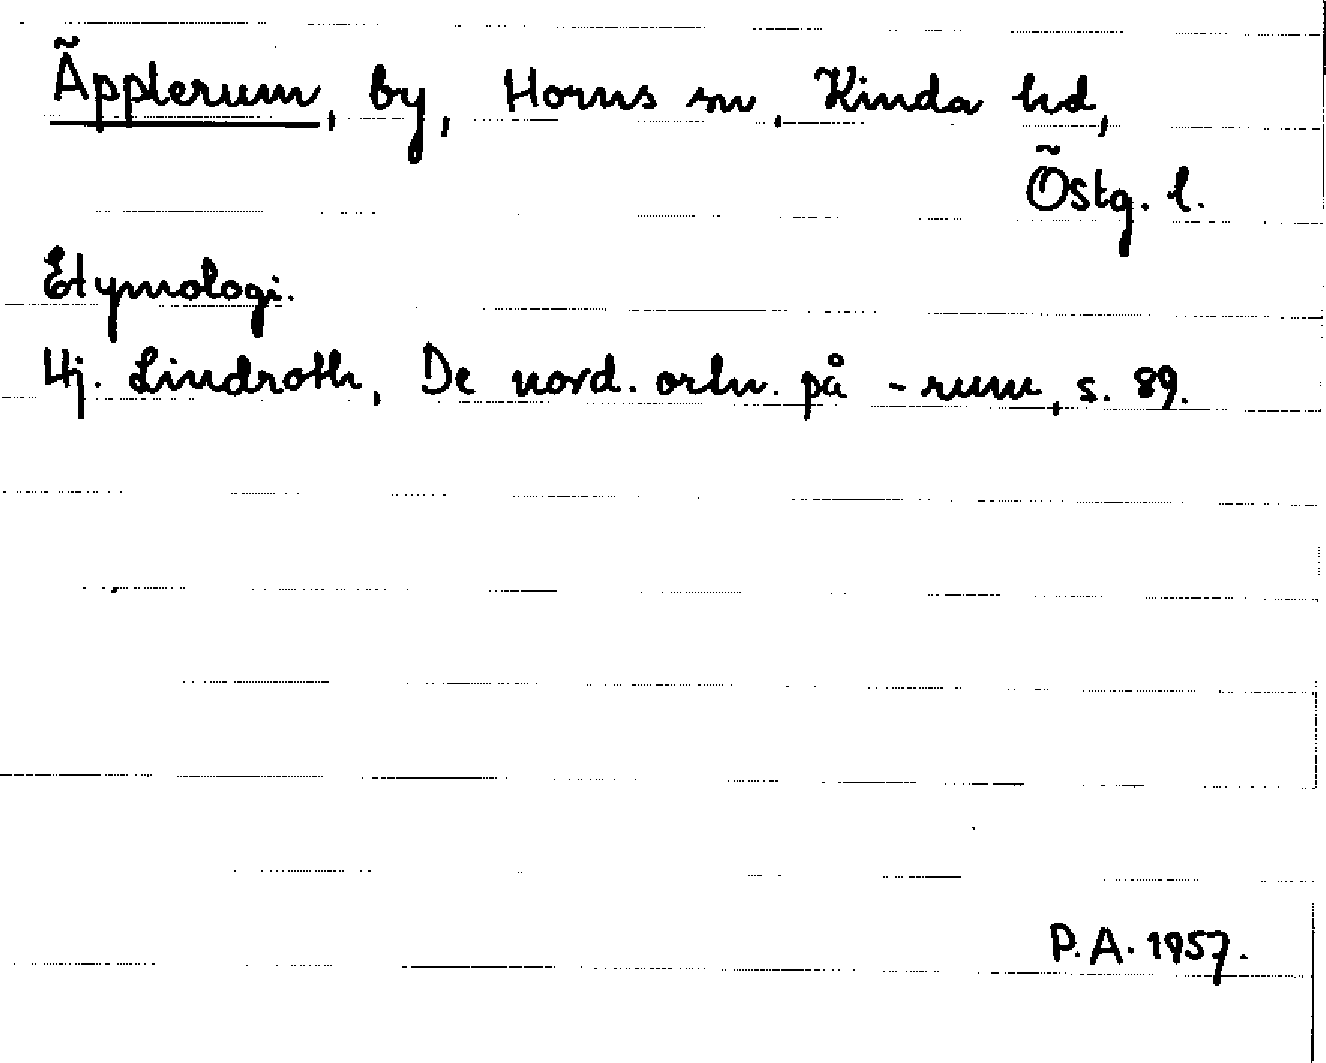 Äpplerum, by, Horns sn, Kinda hd,
Östg. l.
Etymologi.
Hj. Lindroth, De nord. ortn. på -rum, s. 89.
P. A. 1957.